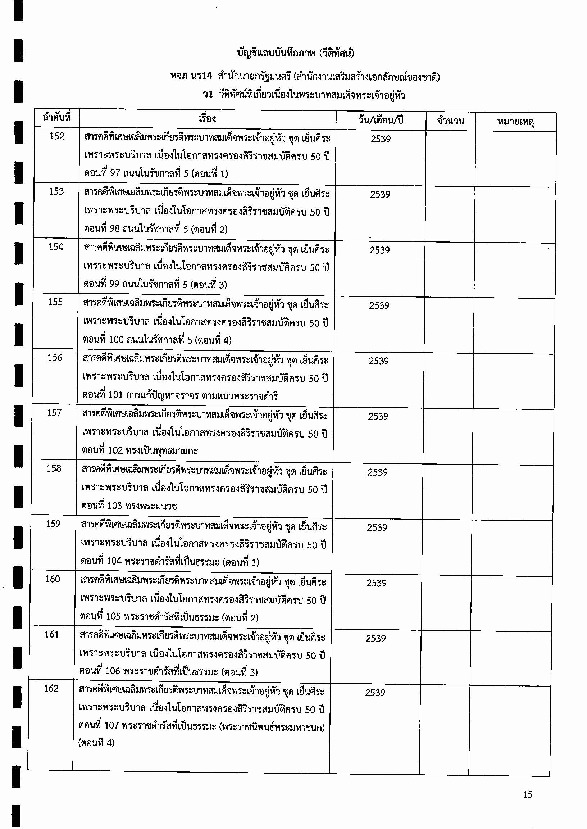 บัญชีแถบบันทึกภาพ (วีดิทัศน์)
หจภ นร14 สำนักนายกรัฐมนตรี (สำนักงานเสริมสร้างเอกลักษณ์ของชาติ)
ว1 วีดิทัศน์ที่เกี่ยวเนื่องในพระบาทสมเด็จพระเจ้าอยู่หัว
ลำดับที่ เรื่อง วัน/เดือน/ปี จำนวน หมายเหตุ
152 สารคดีพิเศษเฉลิมพระเกียรติพระบาทสมเด็จพระเจ้าอยู่หัว ชุด เย็นศิระ 2539
เพราะพระบริบาล เนื่องในโอกาสทรงครองสิริราชสมบัติครบ 50 ปี
ตอนที่ 97 ถนนในรัชกาลที่ 5 (ตอนที่ 1)
153 สารคดีพิเศษเฉลิมพระเกียรติพระบาทสมเด็จพระเจ้าอยู่หัว ชุด เย็นศิระ 2539
เพราะพระบริบาล เนื่องในโอกาสทรงครองสิริราชสมบัติครบ 50 ปี
ตอนที่ 98 ถนนในรัชกาลที่ 5 (ตอนที่ 2)
154 สารคดีพิเศษเฉลิมพระเกียรติพระบาทสมเด็จพระเจ้าอยู่หัว ชุด เย็นศิระ 2539
เพราะพระบริบาล เนื่องในโอกาสทรงครองสิริราชสมบัติครบ 50 ปี
ตอนที่ 99 ถนนในรัชกาลที่ 5 (ตอนที่ 3)
155 สารคดีพิเศษเฉลิมพระเกียรติพระบาทสมเด็จพระเจ้าอยู่หัว ชุด เย็นศิระ 2539
เพราะพระบริบาล เนื่องในโอกาสทรงครองสิริราชสมบัติครบ 50 ปี
ตอนที่ 100 ถนนในรัชกาลที่ 5 (ตอนที่ 4)
156 สารคดีพิเศษเฉลิมพระเกียรติพระบาทสมเด็จพระเจ้าอยู่หัว ชุด เย็นศิระ 2539
เพราะพระบริบาล เนื่องในโอกาสทรงครองสิริราชสมบัติครบ 50 ปี
ตอนที่ 101 การแก้ปัญหาจราจร ตามแนวพระราชดำริ
157 สารคดีพิเศษเฉลิมพระเกียรติพระบาทสมเด็จพระเจ้าอยู่หัว ชุด เย็นศิระ 2539
เพราะพระบริบาล เนื่องในโอกาสทรงครองสิริราชสมบัติครบ 50 ปี
ตอนที่ 102 ทรงเป็นพุทธมามกะ
158 สารคดีพิเศษเฉลิมพระเกียรติพระบาทสมเด็จพระเจ้าอยู่หัว ชุด เย็นศิระ 2539
เพราะพระบริบาล เนื่องในโอกาสทรงครองสิริราชสมบัติครบ 50 ปี
ตอนที่ 103 ทรงพระผนวช
159 สารคดีพิเศษเฉลิมพระเกียรติพระบาทสมเด็จพระเจ้าอยู่หัว ชุด เย็นศิระ 2539
เพราะพระบริบาล เนื่องในโอกาสทรงครองสิริราชสมบัติครบ 50 ปี
ตอนที่ 104 พระราชดำรัสที่เป็นธรรมะ (ตอนที่ 1)
160 สารคดีพิเศษเฉลิมพระเกียรติพระบาทสมเด็จพระเจ้าอยู่หัว ชุด เย็นศิระ 2539
เพราะพระบริบาล เนื่องในโอกาสทรงครองสิริราชสมบัติครบ 50 ปี
ตอนที่ 105 พระราชดำรัสที่เป็นธรรมะ (ตอนที่ 2)
161 สารคดีพิเศษเฉลิมพระเกียรติพระบาทสมเด็จพระเจ้าอยู่หัว ชุด เย็นศิระ 2539
เพราะพระบริบาล เนื่องในโอกาสทรงครองสิริราชสมบัติครบ 50 ปี
ตอนที่ 106 พระราชดำรัสที่เป็นธรรมะ (ตอนที่ 3)
162 สารคดีพิเศษเฉลิมพระเกียรติพระบาทสมเด็จพระเจ้าอยู่หัว ชุด เย็นศิระ 2539
เพราะพระบริบาล เนื่องในโอกาสทรงครองสิริราชสมบัติครบ 50 ปี
ตอนที่ 107 พระราชดำรัสที่เป็นธรรมะ (พระราชนิพนธ์พระมหาชนก)
(ตอนที่ 4)
15